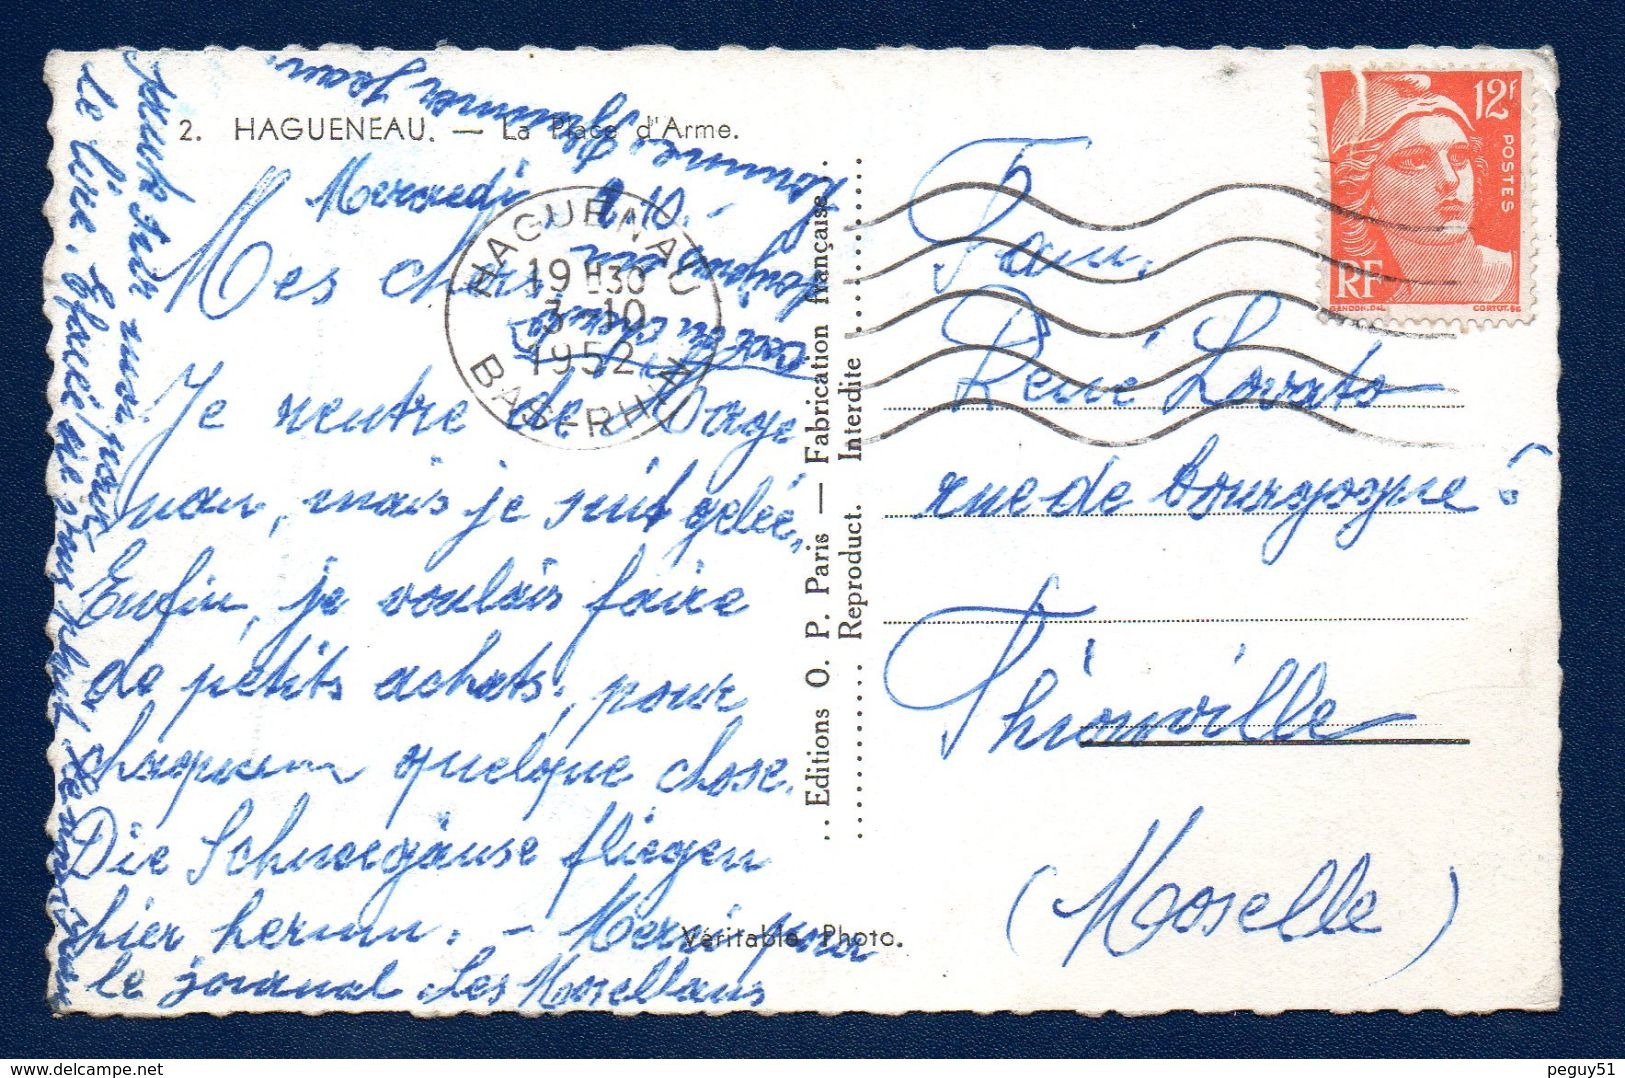 2. HAGUENEAU. — La Place d'Arme.
Mercredi
Mes chers
Je rentre de
man, mais je suis gelée,
Enfin, je voulais faire
de petits achats, pour
chaqueun quelque chose.
Die Schneegänse fliegen
hier herum. – Merci pour
le journal Les Mosellans
le lire.
Véritable Photo.
HAGUENAU
19 H30
3 - 10
1952
BAS-RHIN
Editions O. P. Paris — Fabrication française
Reproduct. Interdite
12F
POSTES
RF
GANDON.DEL.
CORTOT.SC
Fam.
René Lovato
rue de bourgogne 6
Thionville
(Moselle)
peguy51